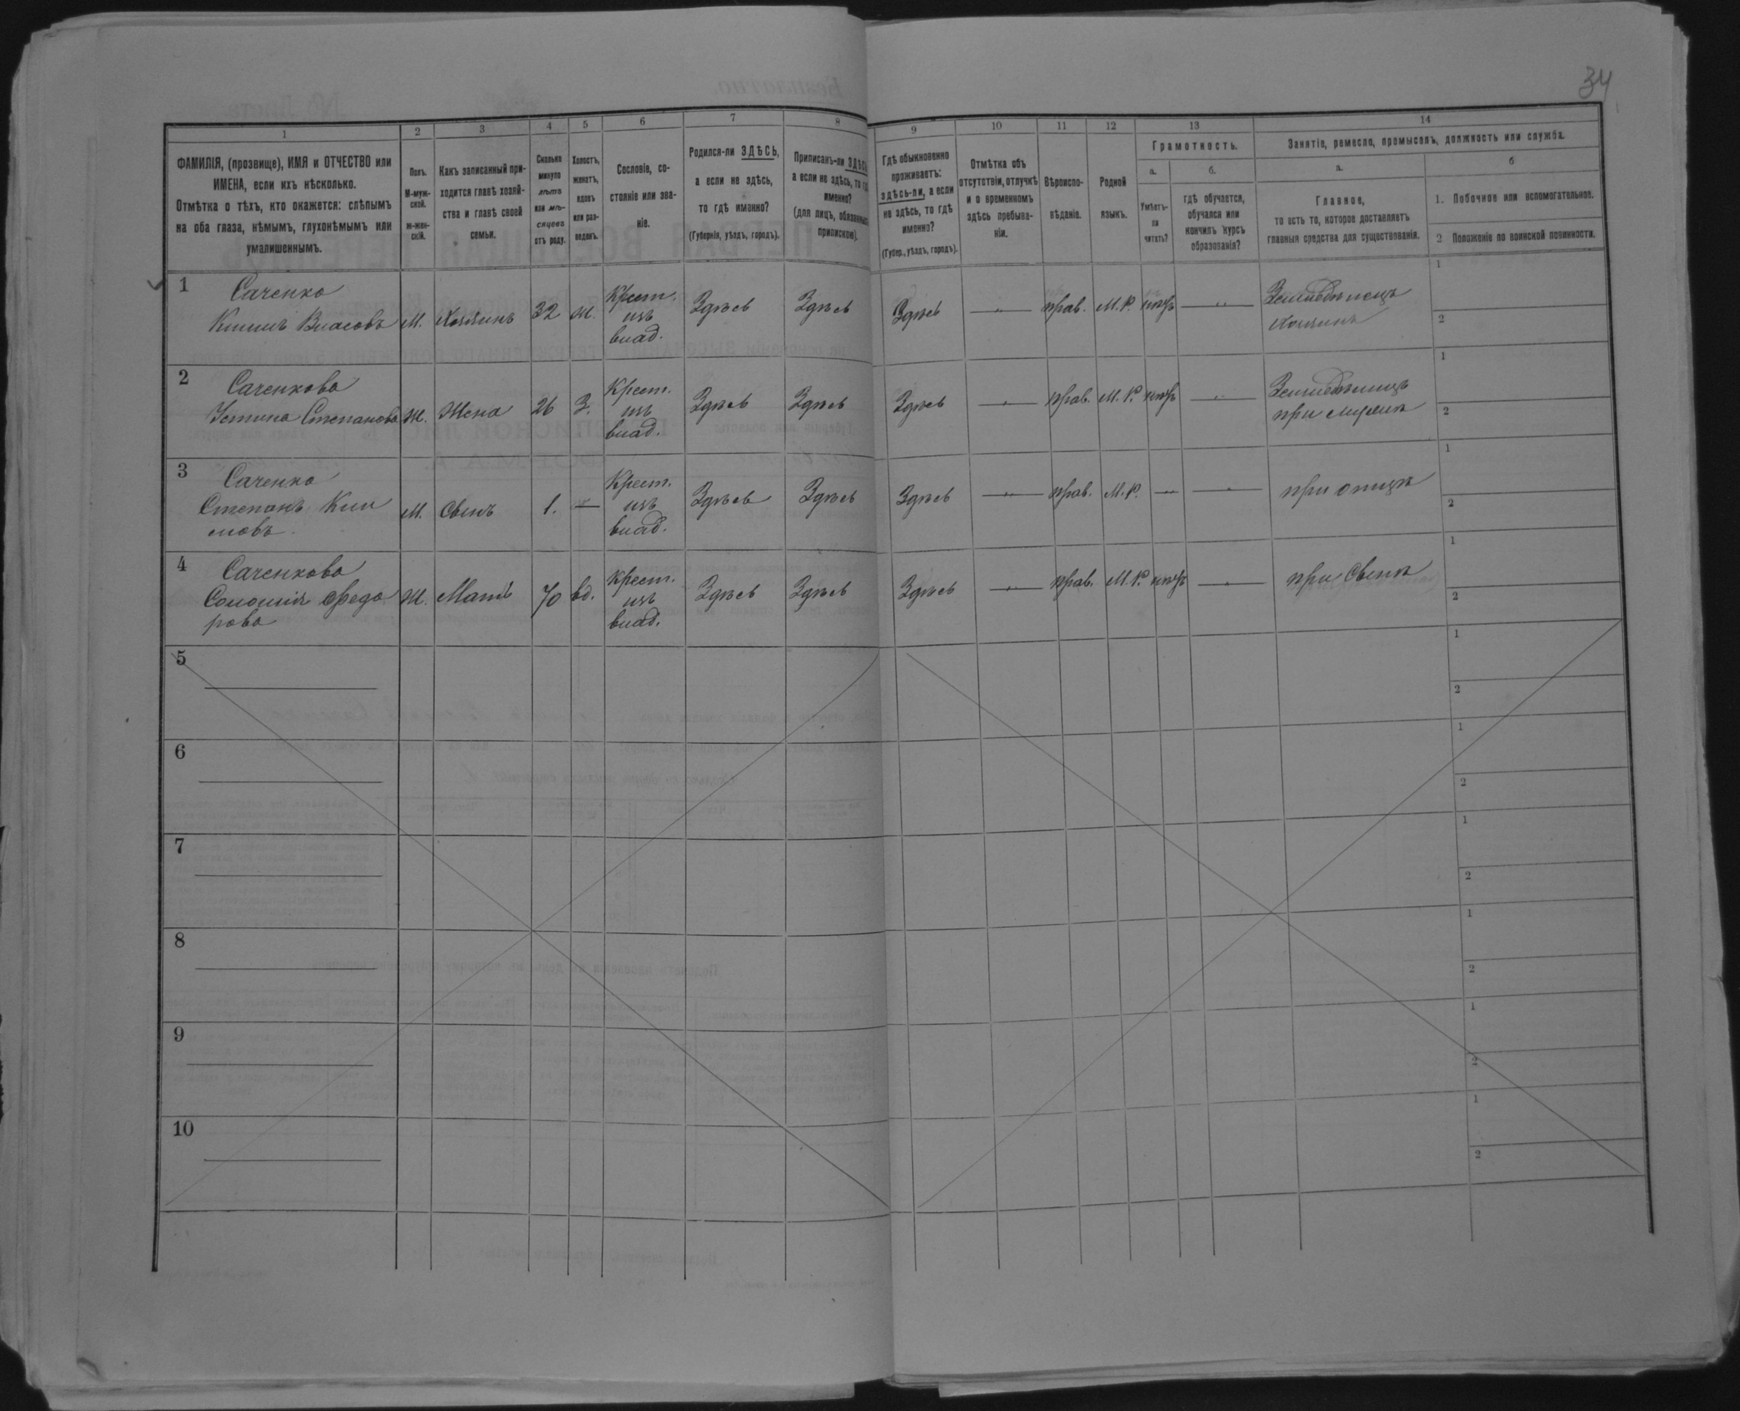 34
1 2 3 4 5 6 7 8 9 10 11 12 13 14
ФАМИЛІЯ, (прозвище), ИМЯ и ОТЧЕСТВО или
ИМЕНА, если ихъ нѣсколько.
Отмѣтка о тѣхъ, кто окажется: слѣпымъ
на оба глаза, нѣмымъ, глухонѣмымъ или
умалишеннымъ.
Полъ.
М-муж-
ской.
ж-жен-
скій.
Какъ записанный при-
ходится главѣ хозяй-
ства и главѣ своей
семьи.
Сколько
минуло
лѣтъ
или мѣ-
сяцевъ
отъ роду.
Холостъ,
женатъ,
вдовъ
или раз-
веденъ.
Сословіе, со-
стояніе или зва-
ніе.
Родился-ли ЗДѢСЬ,
а если не здѣсь,
то гдѣ именно?
(Губернія, уѣздъ, городъ).
Приписанъ-ли ЗДѢСЬ
а если не здѣсь, то гд
именно?
(для лицъ, обязанныхъ
припискою).
Гдѣ обыкновенно
проживаетъ:
здѣсь-ли, а если
не здѣсь, то гдѣ
именно?
(Губер., уѣздъ, городъ).
Отмѣтка объ
отсутствіи, отлучкѣ
и о временномъ
здѣсь пребыва-
ніи.
Вѣроиспо-
вѣданіе.
Родной
языкъ.
Грамотность.
а.
Умѣетъ-
ли
читать?
б.
гдѣ обучается,
обучался или
кончилъ курсъ
образованія?
Занятіе, ремесло, промыселъ, должность или служба.
а.
Главное,
то есть то, которое доставляетъ
главныя средства для существованія.
б
1. Побочное или вспомогательное.
2 Положеніе по воинской повинности.
1 Саченко
Климъ Власовъ М. Хозяинъ 32 Ж. Крест.
изъ
влад. Здѣсь Здѣсь Здѣсь — " — прав. М.Р. нѣтъ — " — Земледѣлецъ
Хозяинъ 1
2
2 Саченкова
Устина Степанова Ж. Жена 26 З. Крест.
изъ
влад. Здѣсь Здѣсь Здѣсь — " — прав. М.Р. нѣтъ — " — Земледѣлецъ
при мужѣ 1
2
3 Саченко
Степанъ Кли
мовъ М. Сынъ 1. — " — Крест.
изъ
влад. Здѣсь Здѣсь Здѣсь — " — прав. М.Р. — " — — " — при отцѣ 1
2
4 Саченкова
Соломія Федо
рова Ж. Мать 70 вд. Крест.
изъ
влад. Здѣсь Здѣсь Здѣсь — " — прав. М.Р. нѣтъ — " — при сынѣ 1
2
5 1
2
6 1
2
7 1
2
8 1
2
9 1
2
10 1
2